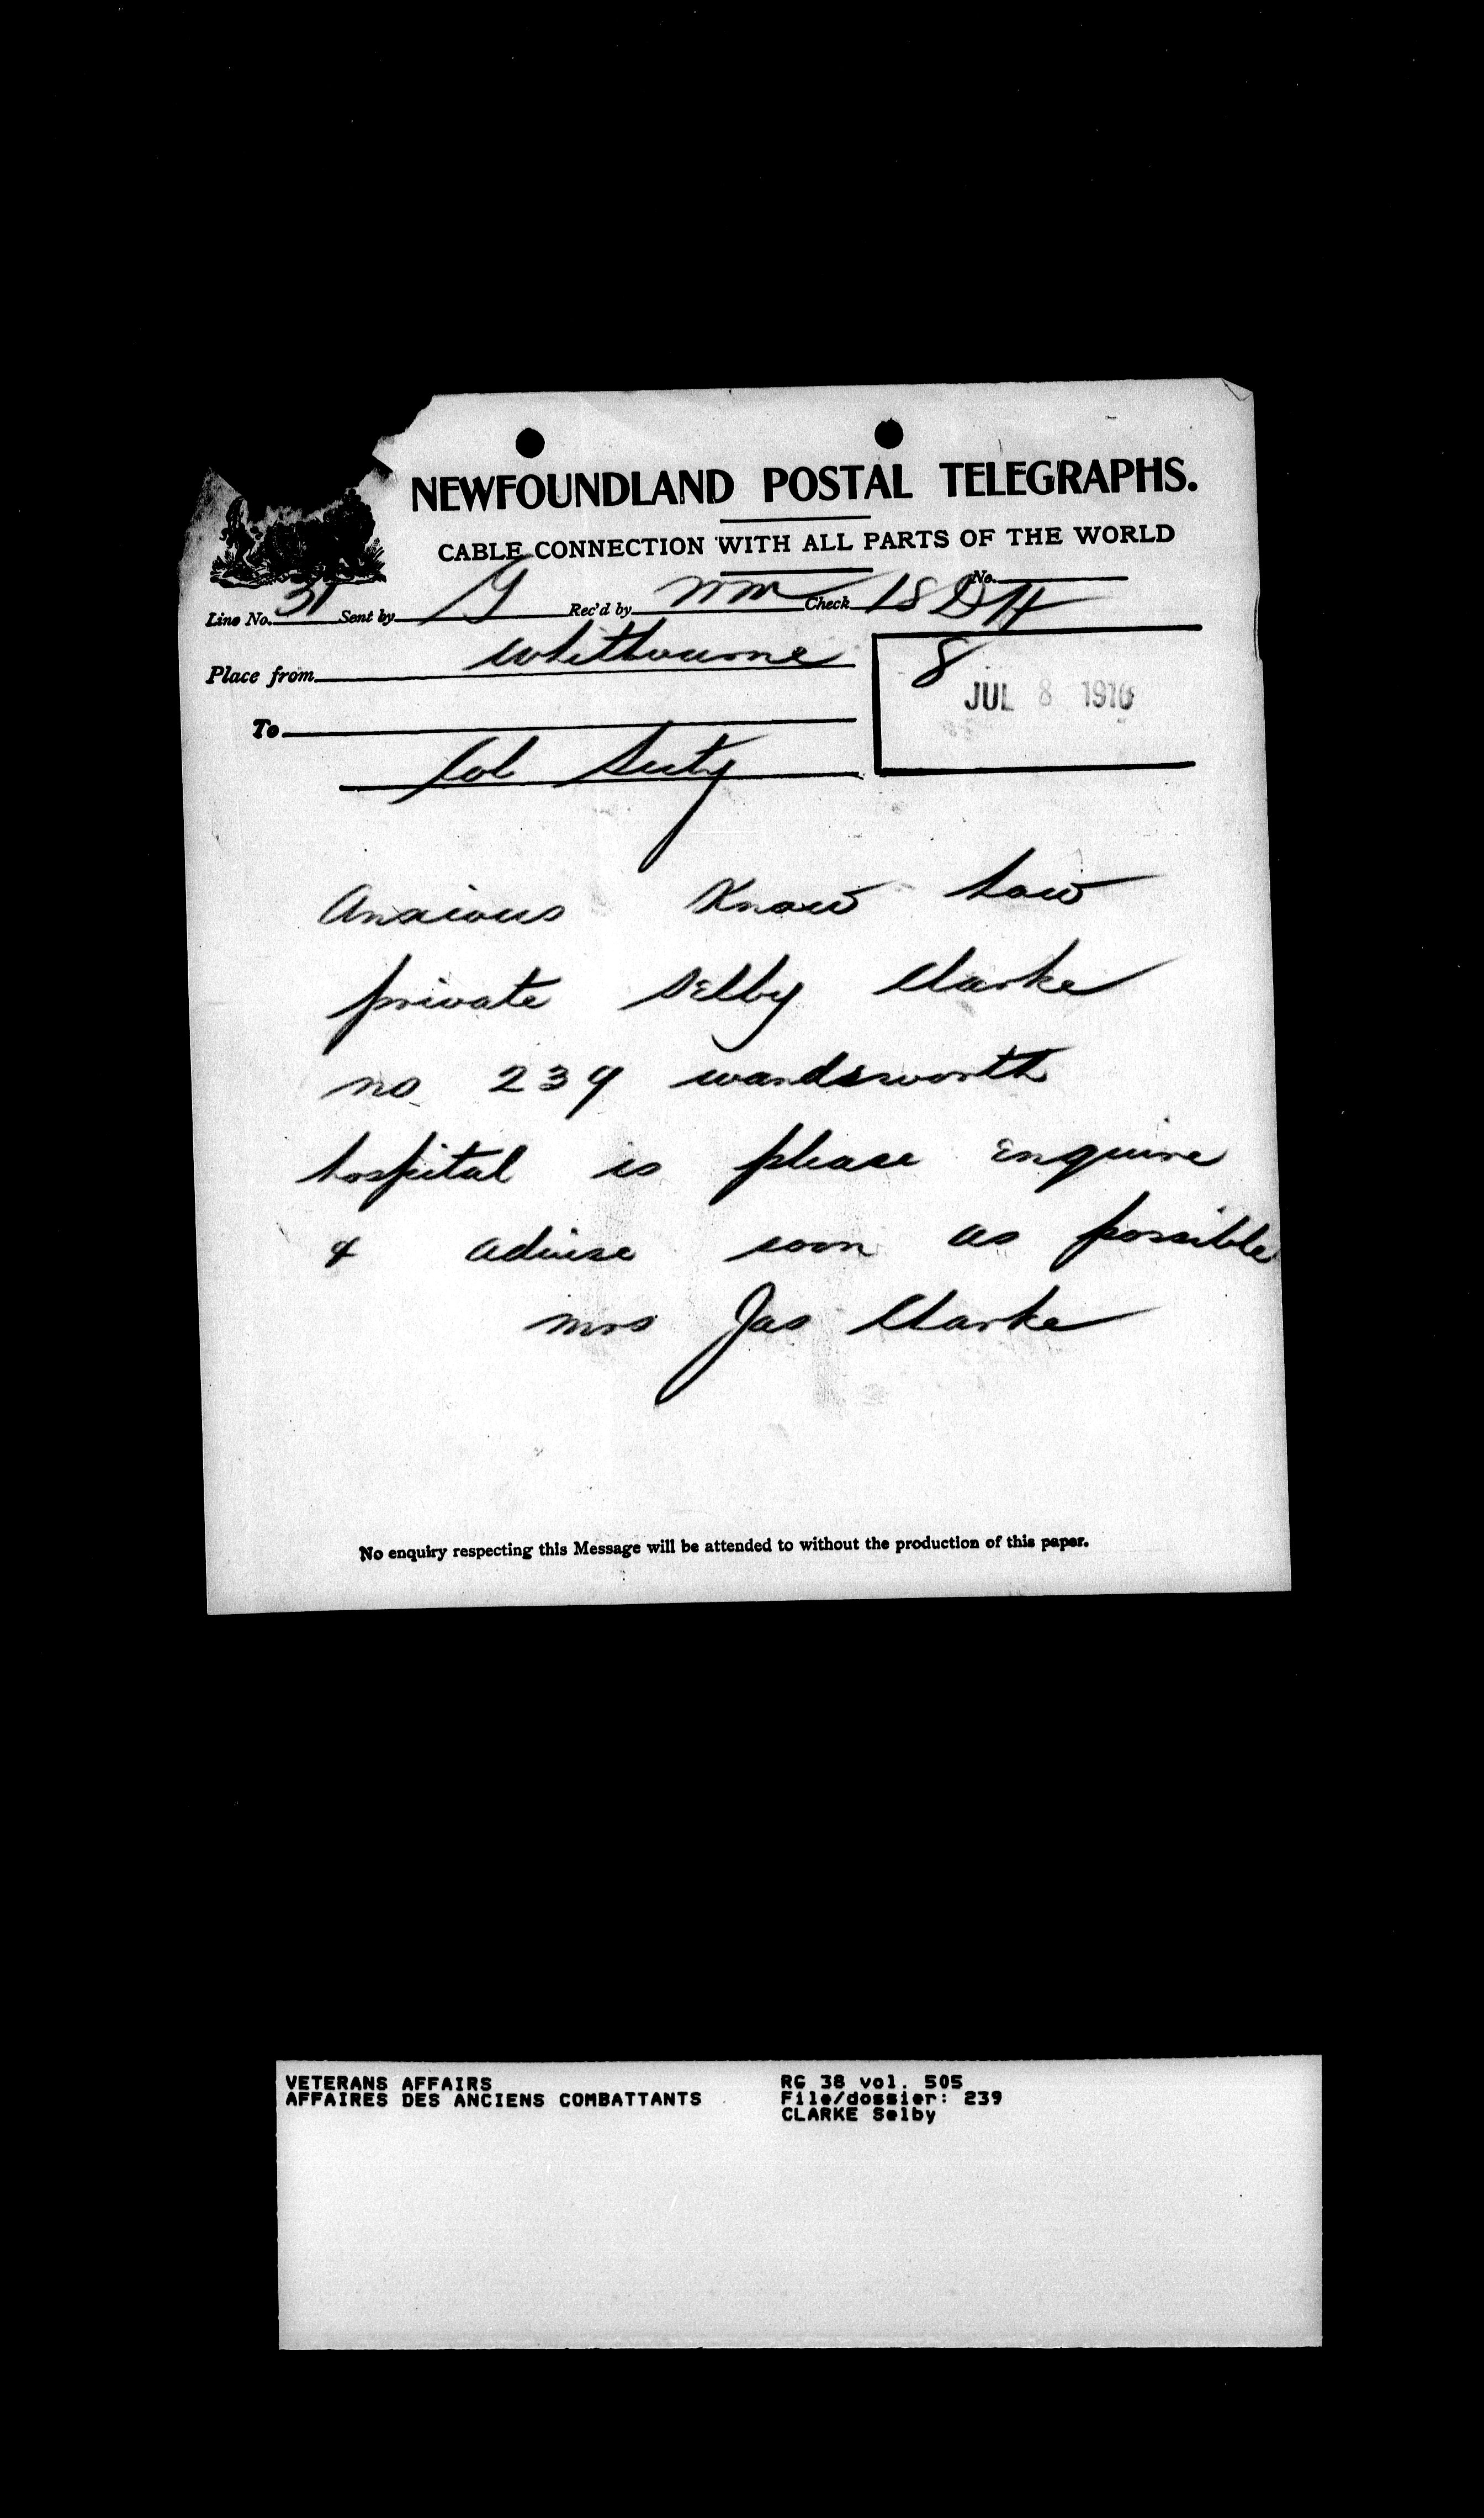 NEWFOUNDLAND POSTAL TELEGRAPHS.
CABLE CONNECTION WITH ALL PARTS OF THE WORLD
No.
Line No. 31 Sent by G Rec'd by Check 18 DH
Place from Whitbourne
8
JUL 8 1916
To
Col Secty
Anxious Know how
private Selby Clarke
no 239 wandsworth
hospital is please Enquire
& advise soon as possible
mrs Jas Clarke
No enquiry respecting this Message will be attended to without the production of this paper.
VETERANS AFFAIRS RG 38 vol. 505
AFFAIRES DES ANCIENS COMBATTANTS File/dossier: 239
CLARKE Selby